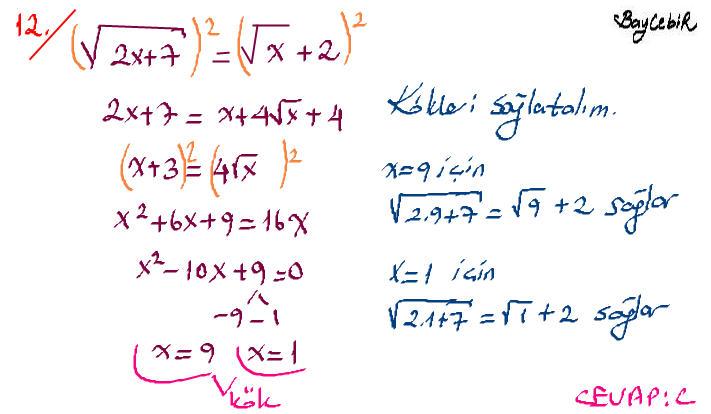 12./ (√(2x+7))² = (√x + 2)²
BayCebiR
2x+7 = x+4√x + 4
(x+3)² = (4√x)²
x²+6x+9=16x
x²-10x+9=0
-9 -1
x=9 x=1
kök
Kökleri sağlatalım.
x=9 için
√(2.9+7) = √9 + 2 sağlar
x=1 için
√(2.1+7) = √1 + 2 sağlar
CEVAP: C